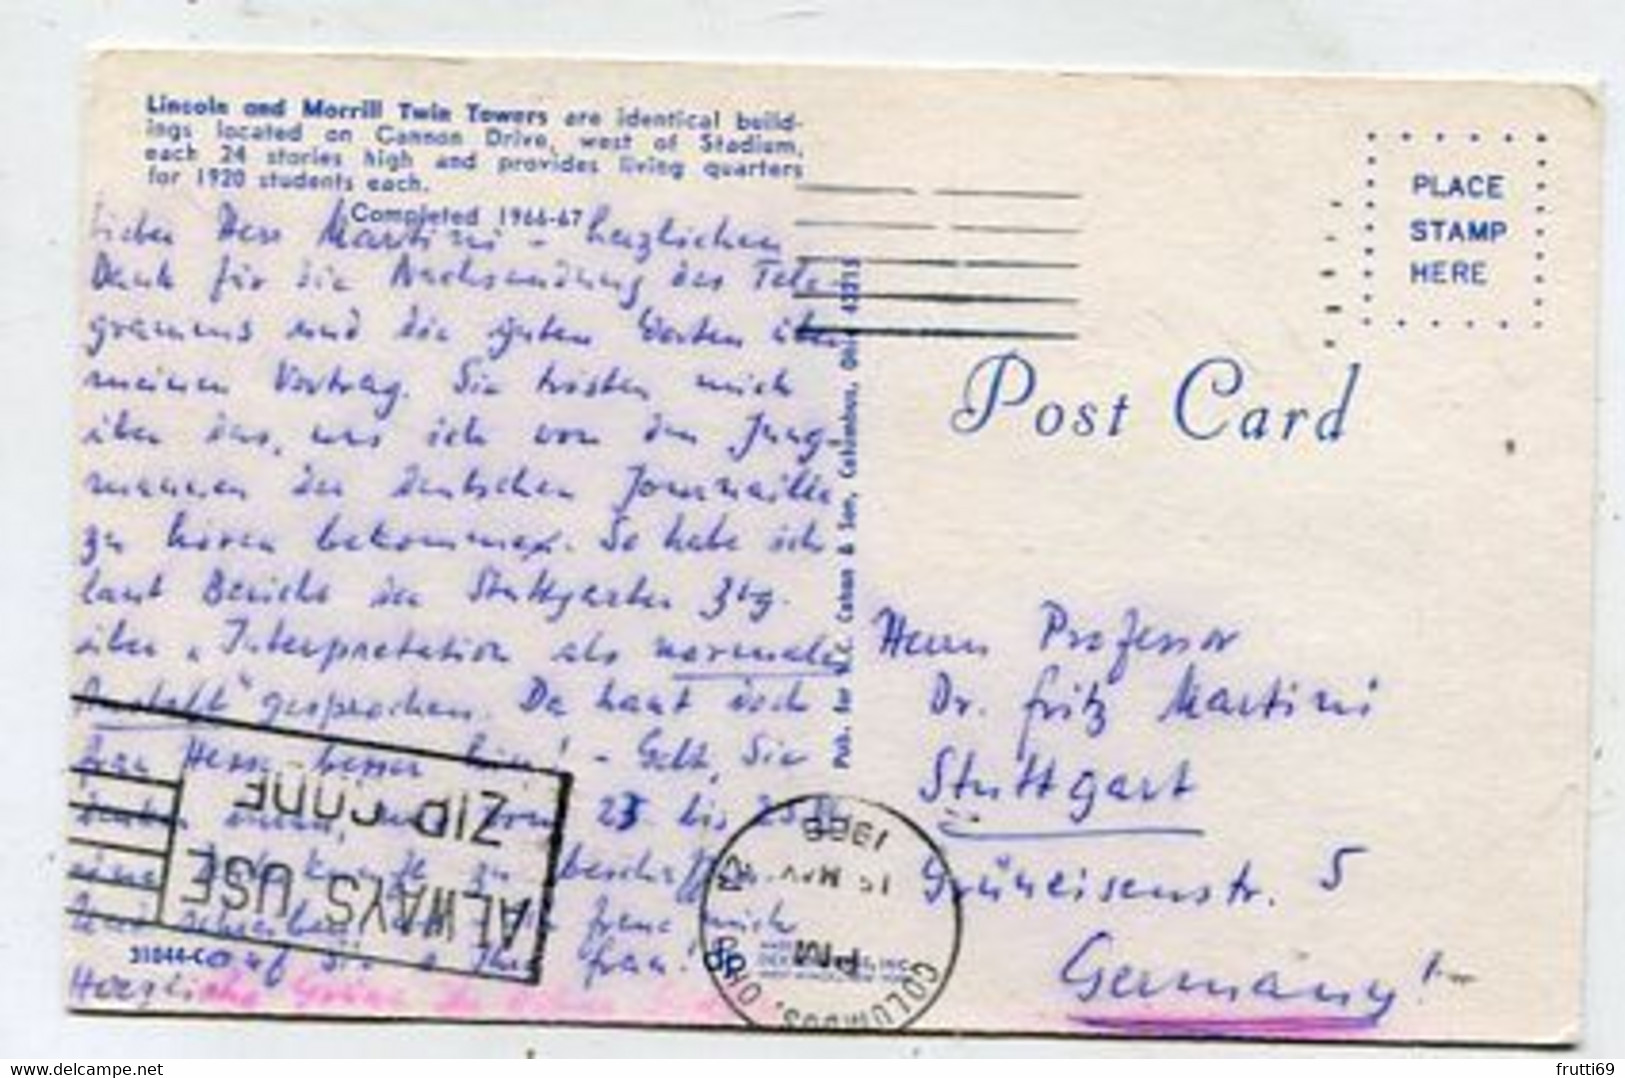 Lincoln and Morrill Twin Towers are identical build-
ings located on Cannon Drive, west of Stadium,
each 24 stories high and provides living quarters
for 1920 students each.
Completed 1966-67
Lieber Herr Martini - herzlichen
Dank für die Nachsendung des Tele-
gramms und die guten Worten über
meinen Vortrag. Sie trösten mich
über das, was ich von den Jung-
mannen der deutschen Journaille
zu hören bekomme. So habe ich
laut Bericht der Stuttgarter Ztg.
über "Interpretation als normale
Anstalt" gesprochen. Da haut doch
Herr besser hin! - Gelt, Sie
vom 23 bis 25
zu
freue mich
auf Sie & Ihre Frau!
Herzliche Grüße
31044-C
Pub. for W.C. Cohan & Son, Columbus, Ohio 43215
ALWAYS USE
ZIP CODE
COLUMBUS, OHIO
PM
15 NOV
PLACE
STAMP
HERE
Post Card
Herrn Professor
Dr. Fritz Martini
Stuttgart
Grüneisenstr. 5
Germany!
frutti69